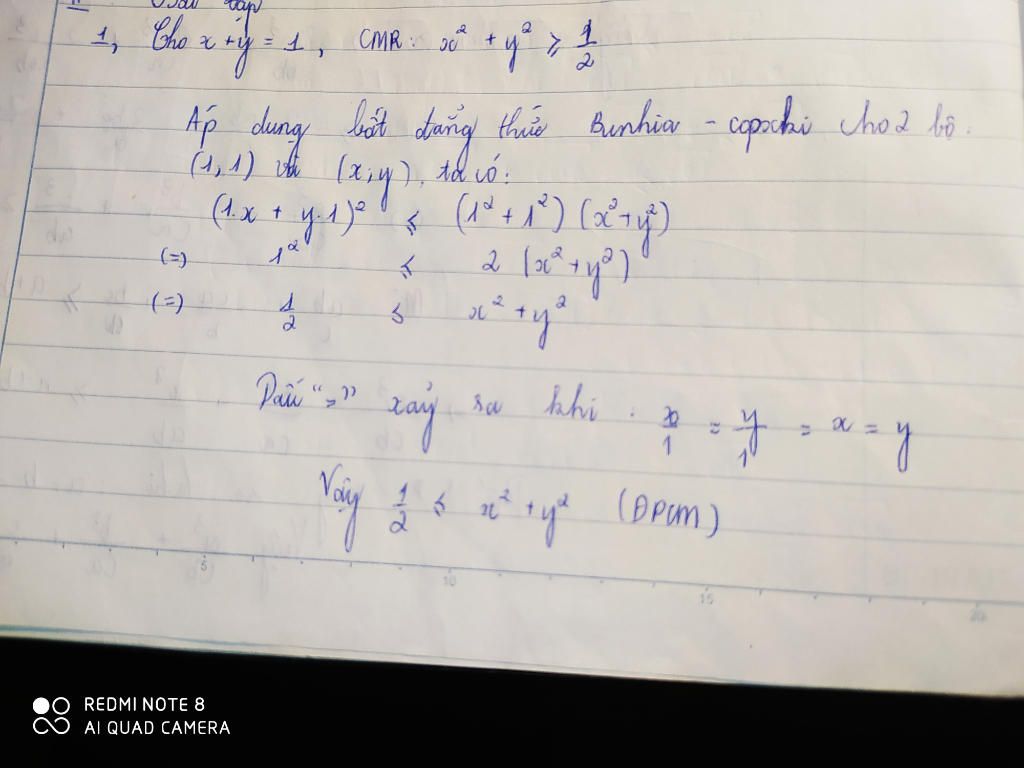 Bài tập
1, Cho x + y = 1, CMR: x² + y² ⩾ 1/2
Áp dụng bất đẳng thức Bunhia - copxki cho 2 bộ.
(1,1) và (x,y), ta có:
(1.x + y.1)² ⩽ (1² + 1²) (x² + y²)
(=) 1² ⩽ 2 (x² + y²)
(=) 1/2 ⩽ x² + y²
Dấu "=" xảy ra khi : x/1 = y/1 = x = y
Vậy 1/2 ⩽ x² + y² (ĐPCM)
5 10 15 20
REDMI NOTE 8
AI QUAD CAMERA